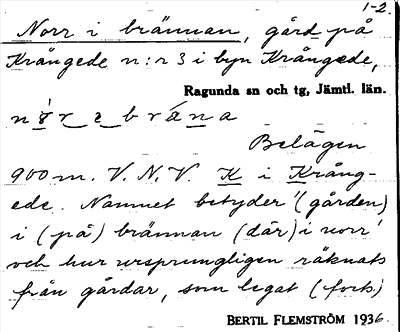 1-2.
Norr i brännan, gård på
Krångede n:r 3 i byn Krångede,
Ragunda sn och tg, Jämtl. län.
Belägen
900 m. V.N.V. K i Krång-
ede. Namnet betyder '(gården)
i (på) brännan (där) i norr'
och har ursprungligen räknats
från gårdar, som legat (forts.)
BERTIL FLEMSTRÖM 1936.